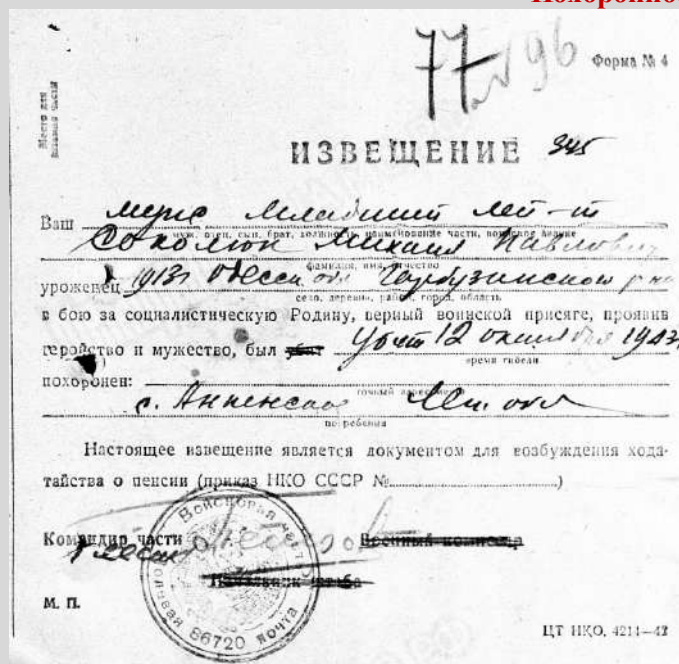 Похоронно
77 № 96
Форма № 4
Место для
штампа части
ИЗВЕЩЕНИЕ 345
Ваш муж Младший лей-т
муж, отец, сын, брат, должность, наименование части, воинское звание
Соколюк Михаил Павлович
фамилия, имя, отчество
уроженец 1913г Одесск обл р на
село, деревня, район, город, область
в бою за социалистическую Родину, верный воинской присяге, проявив
геройство и мужество, был убит Убит 12 октября 1943г
время гибели
похоронен:
точный адрес места
с. Анненское обл
погребения
Настоящее извещение является документом для возбуждения хода-
тайства о пенсии (приказ НКО СССР № )
Командир части Военный комиссар
Начальник штаба
М. П.
Войсковая часть
86720 почта
ЦТ НКО. 4214—42